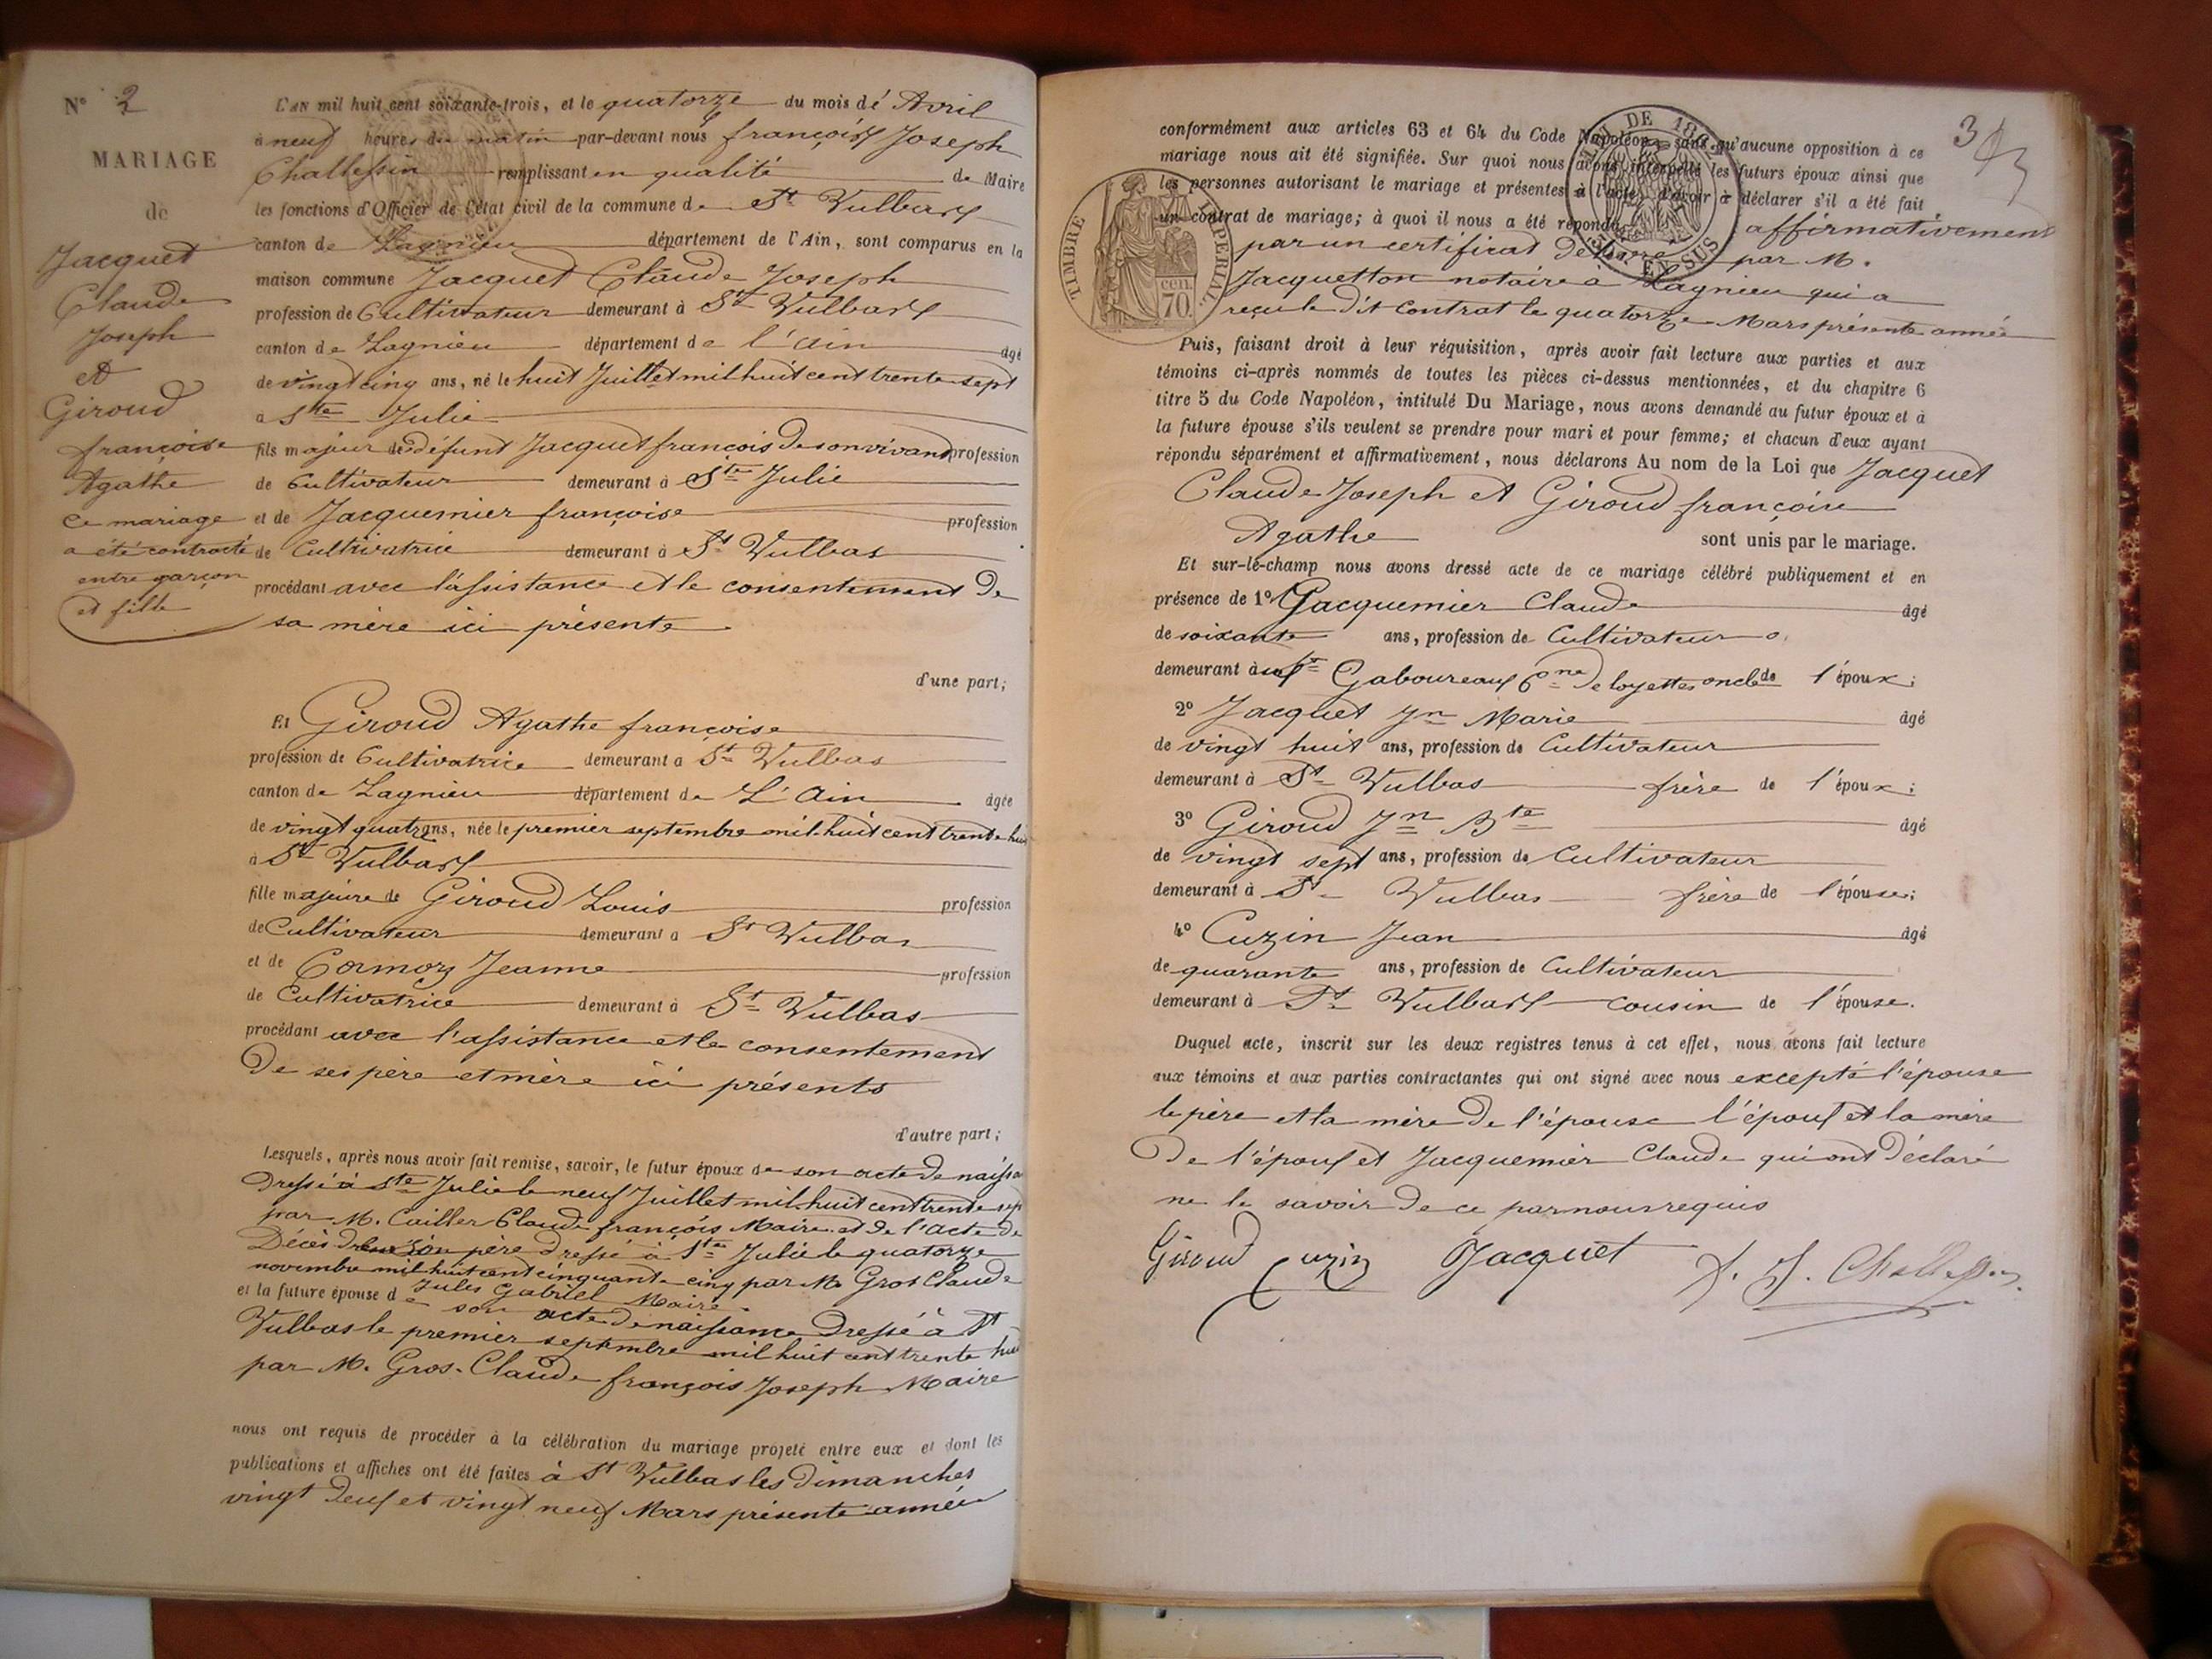 N° 2
MARIAGE
de
Jacquet
Claude
Joseph
et
Giroud
françoise
Agathe
ce mariage
a été contracté
entre garçon
et fille
L'AN mil huit cent soixante-trois, et le quatorze du mois de Avril
à neuf heures du matin par-devant nous françois Joseph
Challessin remplissant en qualité de Maire
les fonctions d'Officier de l'état civil de la commune de St Vulbas
canton de Lagnieu département de l'Ain, sont comparus en la
maison commune Jacquet Claude Joseph
profession de Cultivateur demeurant à St Vulbas
canton de Lagnieu département de l'Ain âgé
de vingt cinq ans, né le huit Juillet mil huit cent trente sept
à Ste Julie
fils majeur de défunt Jacquet françois de son vivant profession
de Cultivateur demeurant à Ste Julie
et de Jacquemier françoise profession
de Cultivatrice demeurant à St Vulbas
procédant avec l'assistance et le consentement de
sa mère ici présente
d'une part;
Et Giroud Agathe françoise
profession de Cultivatrice demeurant à St Vulbas
canton de Lagnieu département de L'Ain âgée
de vingt quatre ans, née le premier septembre mil huit cent trente huit
à St Vulbas
fille majeure de Giroud Louis profession
de Cultivateur demeurant à St Vulbas
et de Cormoz Jeanne profession
de Cultivatrice demeurant à St Vulbas
procédant avec l'assistance et le consentement
De ses père et mère ici présents
d'autre part;
Lesquels, après nous avoir fait remise, savoir, le futur époux de son acte de
Dressé à Ste Julie le neuf Juillet mil huit cent trente sept
par M. Cailler Claude françois Maire et de l'acte de
Décès de son père dressé à Ste Julie le quatorze
novembre mil huit cent cinquante cinq par M. Gros Claude
Jules Gabriel Maire
et la future épouse de son acte de naissance Dressé à St
Vulbas le premier septembre mil huit cent trente huit
par M. Gros-Claude françois Joseph Maire
nous ont requis de procéder à la célébration du mariage projeté entre eux et dont les
publications et affiches ont été faites à St Vulbas les Dimanches
vingt deux et vingt neuf Mars présente année
3
conformément aux articles 63 et 64 du Code Napoléon, sans qu'aucune opposition à ce
mariage nous ait été signifiée. Sur quoi nous avons interpellé les futurs époux ainsi que
les personnes autorisant le mariage et présentes à l'acte, d'avoir à déclarer s'il a été fait
un contrat de mariage; à quoi il nous a été répondu affirmativement
par un certificat Délivré par M.
Jacquetton notaire à Lagnieu qui a
reçu le Dit Contrat le quatorze Mars présente année
TIMBRE IMPERIAL
70
EN SUS
Puis, faisant droit à leur réquisition, après avoir fait lecture aux parties et aux
témoins ci-après nommés de toutes les pièces ci-dessus mentionnées, et du chapitre 6
titre 5 du Code Napoléon, intitulé Du Mariage, nous avons demandé au futur époux et à
la future épouse s'ils veulent se prendre pour mari et pour femme; et chacun d'eux ayant
répondu séparément et affirmativement, nous déclarons Au nom de la Loi que Jacquet
Claude Joseph et Giroud françoise
Agathe sont unis par le mariage.
Et sur-le-champ nous avons dressé acte de ce mariage célébré publiquement et en
présence de 1° Jacquemier Claude âgé
de soixante ans, profession de Cultivateur
demeurant à Gaboureaux Cne de loyettes oncle de l'époux;
2° Jacquet Jn Marie âgé
de vingt huit ans, profession de Cultivateur
demeurant à St Vulbas frère de l'époux;
3° Giroud Jn Bte âgé
de vingt sept ans, profession de Cultivateur
demeurant à St Vulbas frère de l'épouse;
4° Cuzin Jean âgé
de quarante ans, profession de Cultivateur
demeurant à St Vulbas cousin de l'épouse.
Duquel acte, inscrit sur les deux registres tenus à cet effet, nous avons fait lecture
aux témoins et aux parties contractantes qui ont signé avec nous excepté l'épouse
le père et la mère De l'épouse l'époux et la mère
De l'époux et Jacquemier Claude qui ont Déclaré
ne le savoir De ce par nous requis
Giroud Cuzin Jacquet F. J. Challessin